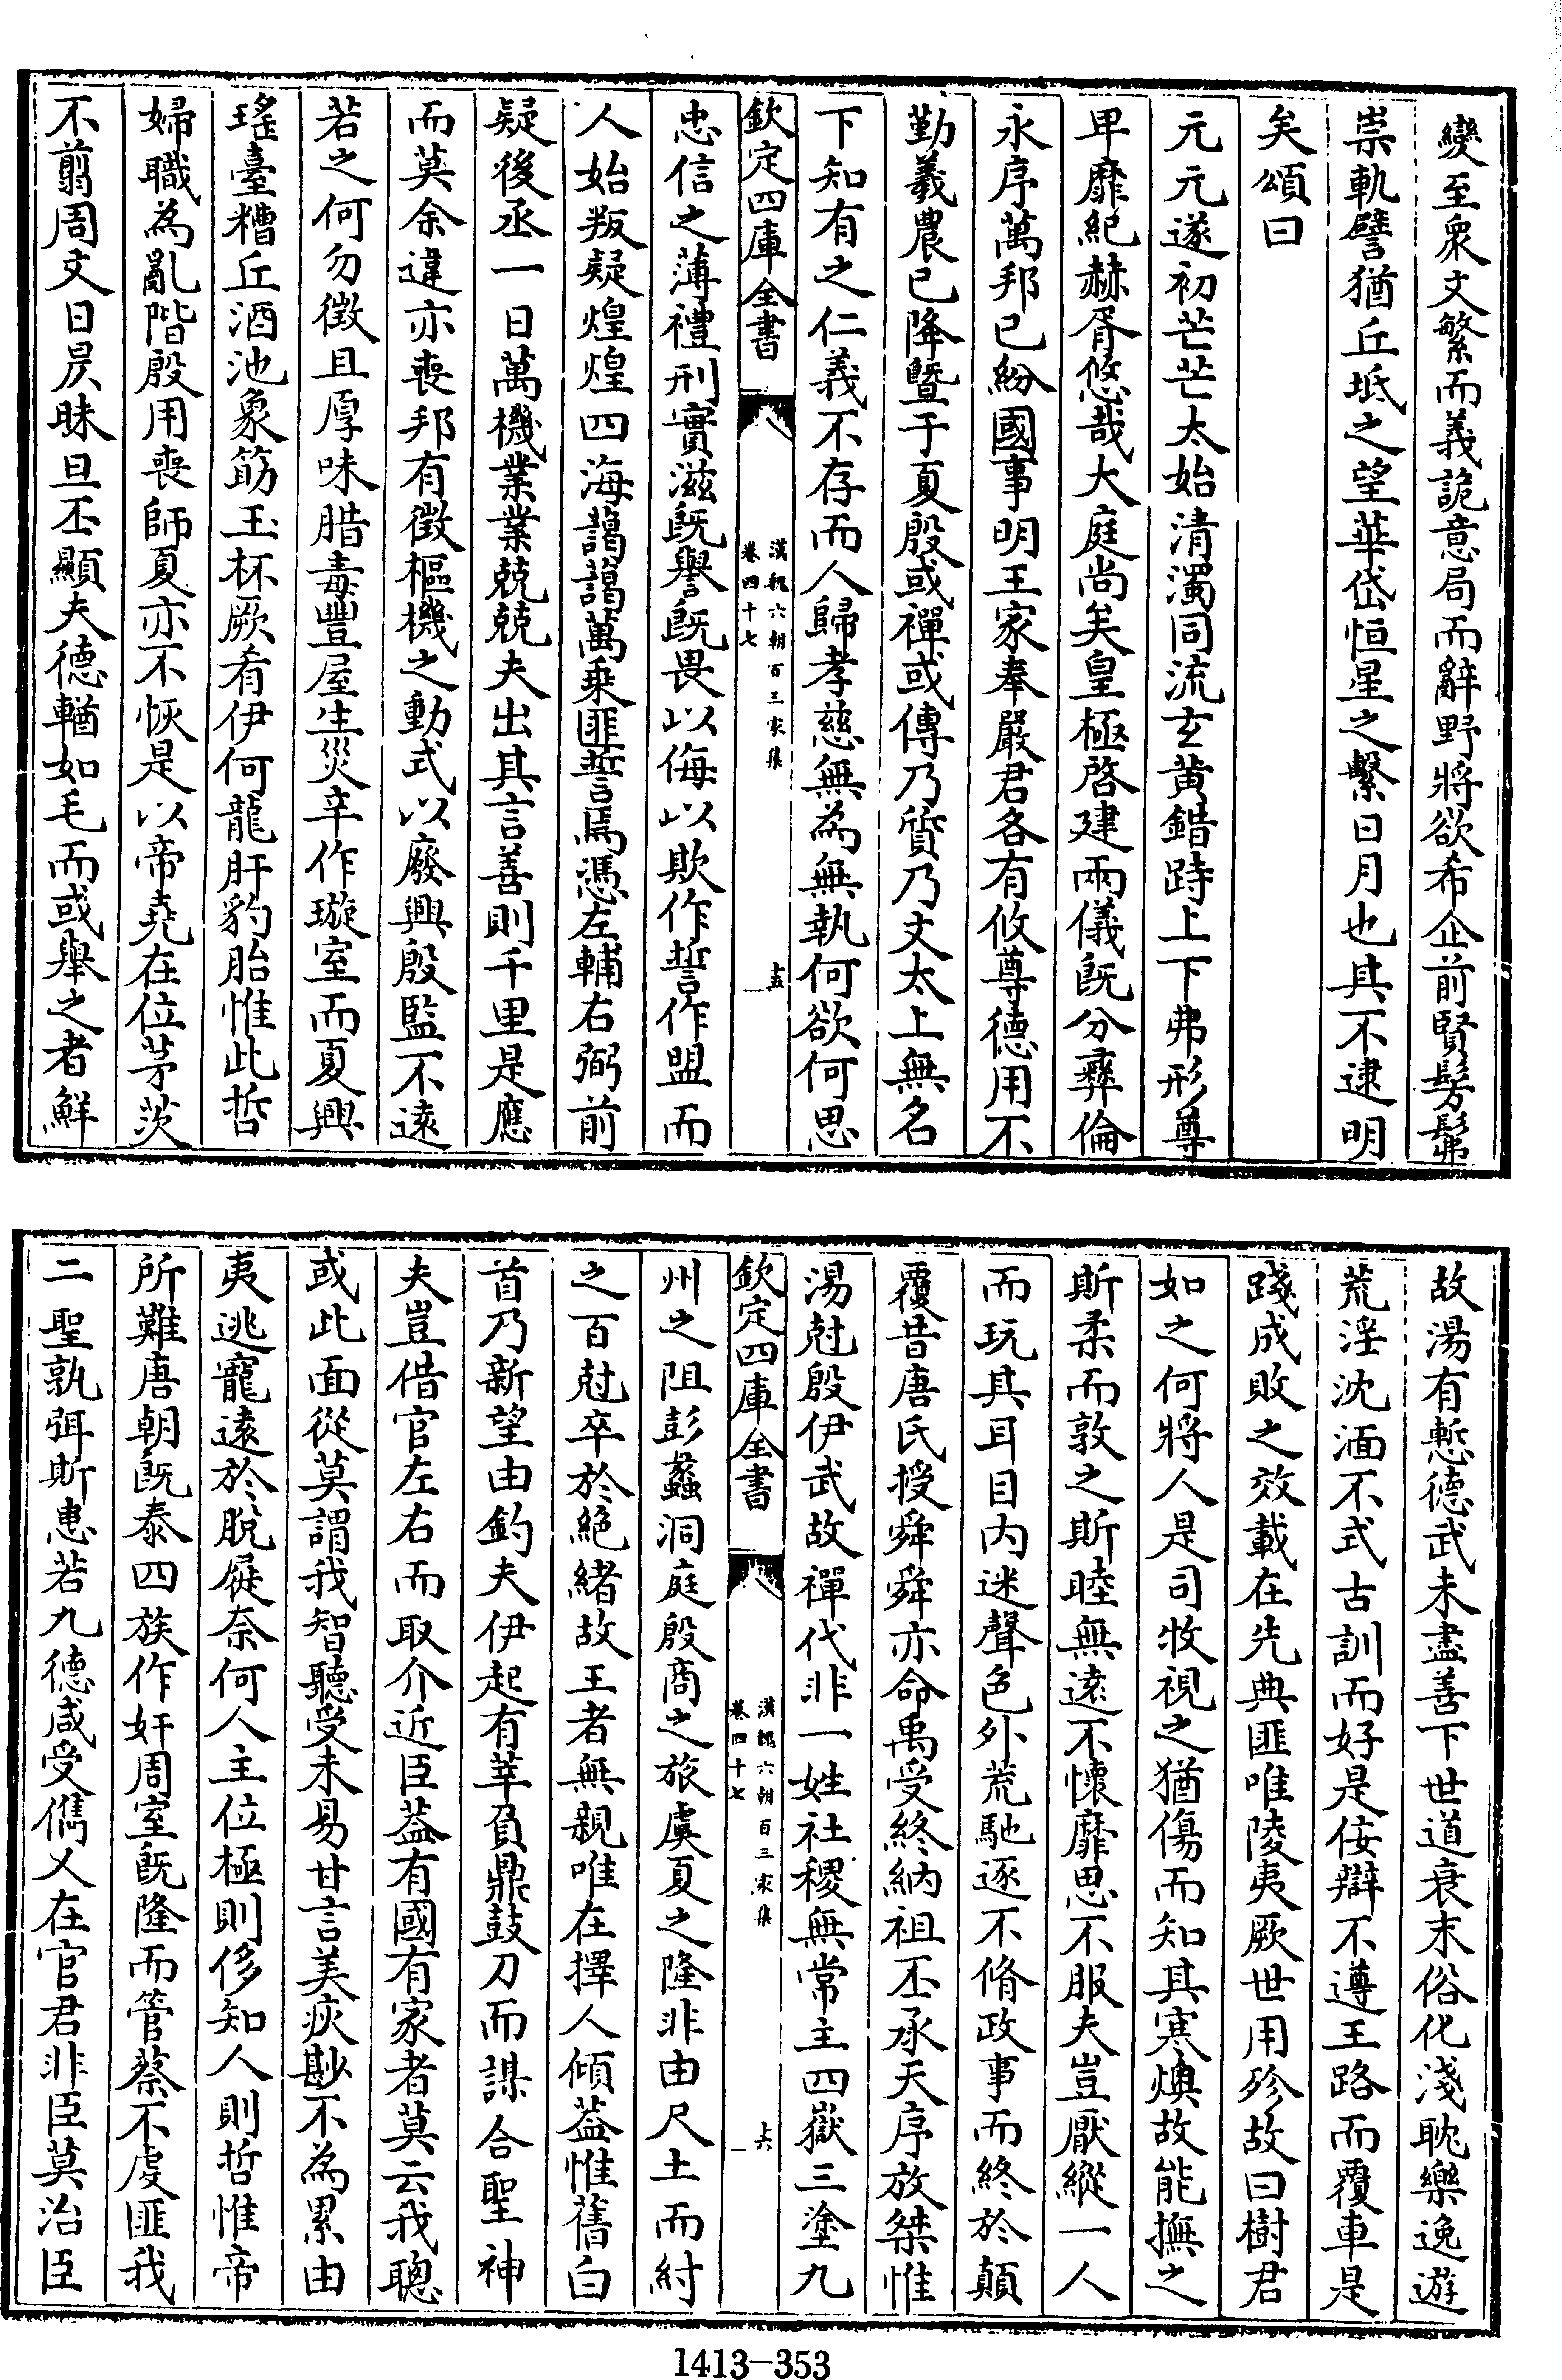 變至衆文繁而義詭意局而辭野將欲希企前賢髣髴
崇軌譬猶丘坻之望華岱恒星之繫日月也其不逮明
矣頌曰
元元遂初芒芒太始清濁同流玄黄錯跱上下弗形尊
卑靡紀赫胥悠哉大庭尚矣皇極啓建兩儀既分彛倫
永序萬邦已紛國事明王家奉嚴君各有攸尊德用不
勤羲農已降暨于夏殷或禪或傳乃質乃文太上無名
下知有之仁義不存而人歸孝慈無為無執何欲何思
欽定四庫全書
漢魏六朝百三家集
卷四十七
十五
忠信之薄禮刑實滋既譽既畏以侮以欺作誓作盟而
人始叛疑煌煌四海藹藹萬乗匪誓焉憑左輔右弼前
疑後丞一日萬機業業兢兢夫出其言善則千里是應
而莫余違亦喪邦有徴樞機之動式以廢興殷監不逺
若之何勿徴且厚味腊毒豐屋生災辛作璇室而夏興
瑤臺糟丘酒池象筯玉杯厥肴伊何龍肝豹胎惟此哲
婦職為亂階殷用喪師夏亦不恢是以帝堯在位茅茨
不翦周文日昃昧旦丕顯夫德輶如毛而或舉之者鮮
故湯有慙德武未盡善下世道衰末俗化淺耽樂逸遊
荒淫沈湎不式古訓而好是佞辯不遵王路而覆車是
踐成敗之效載在先典匪唯陵夷厥世用殄故曰樹君
如之何將人是司牧視之猶傷而知其寒燠故能撫之
斯柔而敦之斯睦無逺不懷靡思不服夫豈厭縱一人
而玩其耳目内迷聲色外荒馳逐不脩政事而終於顛
覆昔唐氏授舜舜亦命禹受終納祖丕承天序放桀惟
湯尅殷伊武故禪代非一姓社稷無常主四嶽三塗九
欽定四庫全書
漢魏六朝百三家集
卷四十七
十六
州之阻彭蠡洞庭殷商之旅虞夏之隆非由尺土而紂
之百尅卒於絶緒故王者無親唯在擇人傾葢惟舊白
首乃新望由釣夫伊起有莘負鼎鼓刀而謀合聖神
夫豈借官左右而取介近臣葢有國有家者莫云我聰
或此面從莫謂我智聽受未易甘言美疢尠不為累由
夷逃寵逺於脫屣奈何人主位極則侈知人則哲惟帝
所難唐朝既泰四族作奸周室既隆而管蔡不虔匪我
二聖孰弭斯患若九德咸受儁乂在官君非臣莫治臣
1413-353